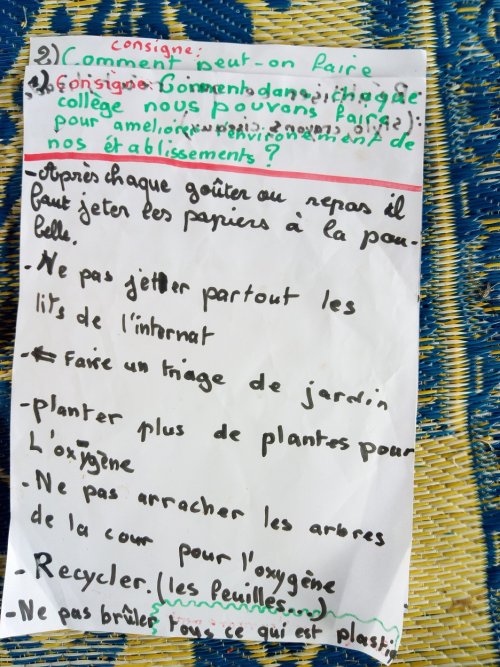 consigne:
2) Comment peut-on faire
1) Consigne: Comment dans chaque
collège nous pouvons faire
pour améliorer l'environnement de
nos établissements?
-Après chaque goûter ou repas il
faut jeter les papiers à la pou-
belle.
- Ne pas jetter partout les
lits de l'internat
- Faire un triage de jardin
-planter plus de plantes pour
L'oxygène
- Ne pas arracher les arbres
de la cour pour l'oxygène
- Recycler. (les feuilles...)
- Ne pas brûler tous ce qui est plastiq